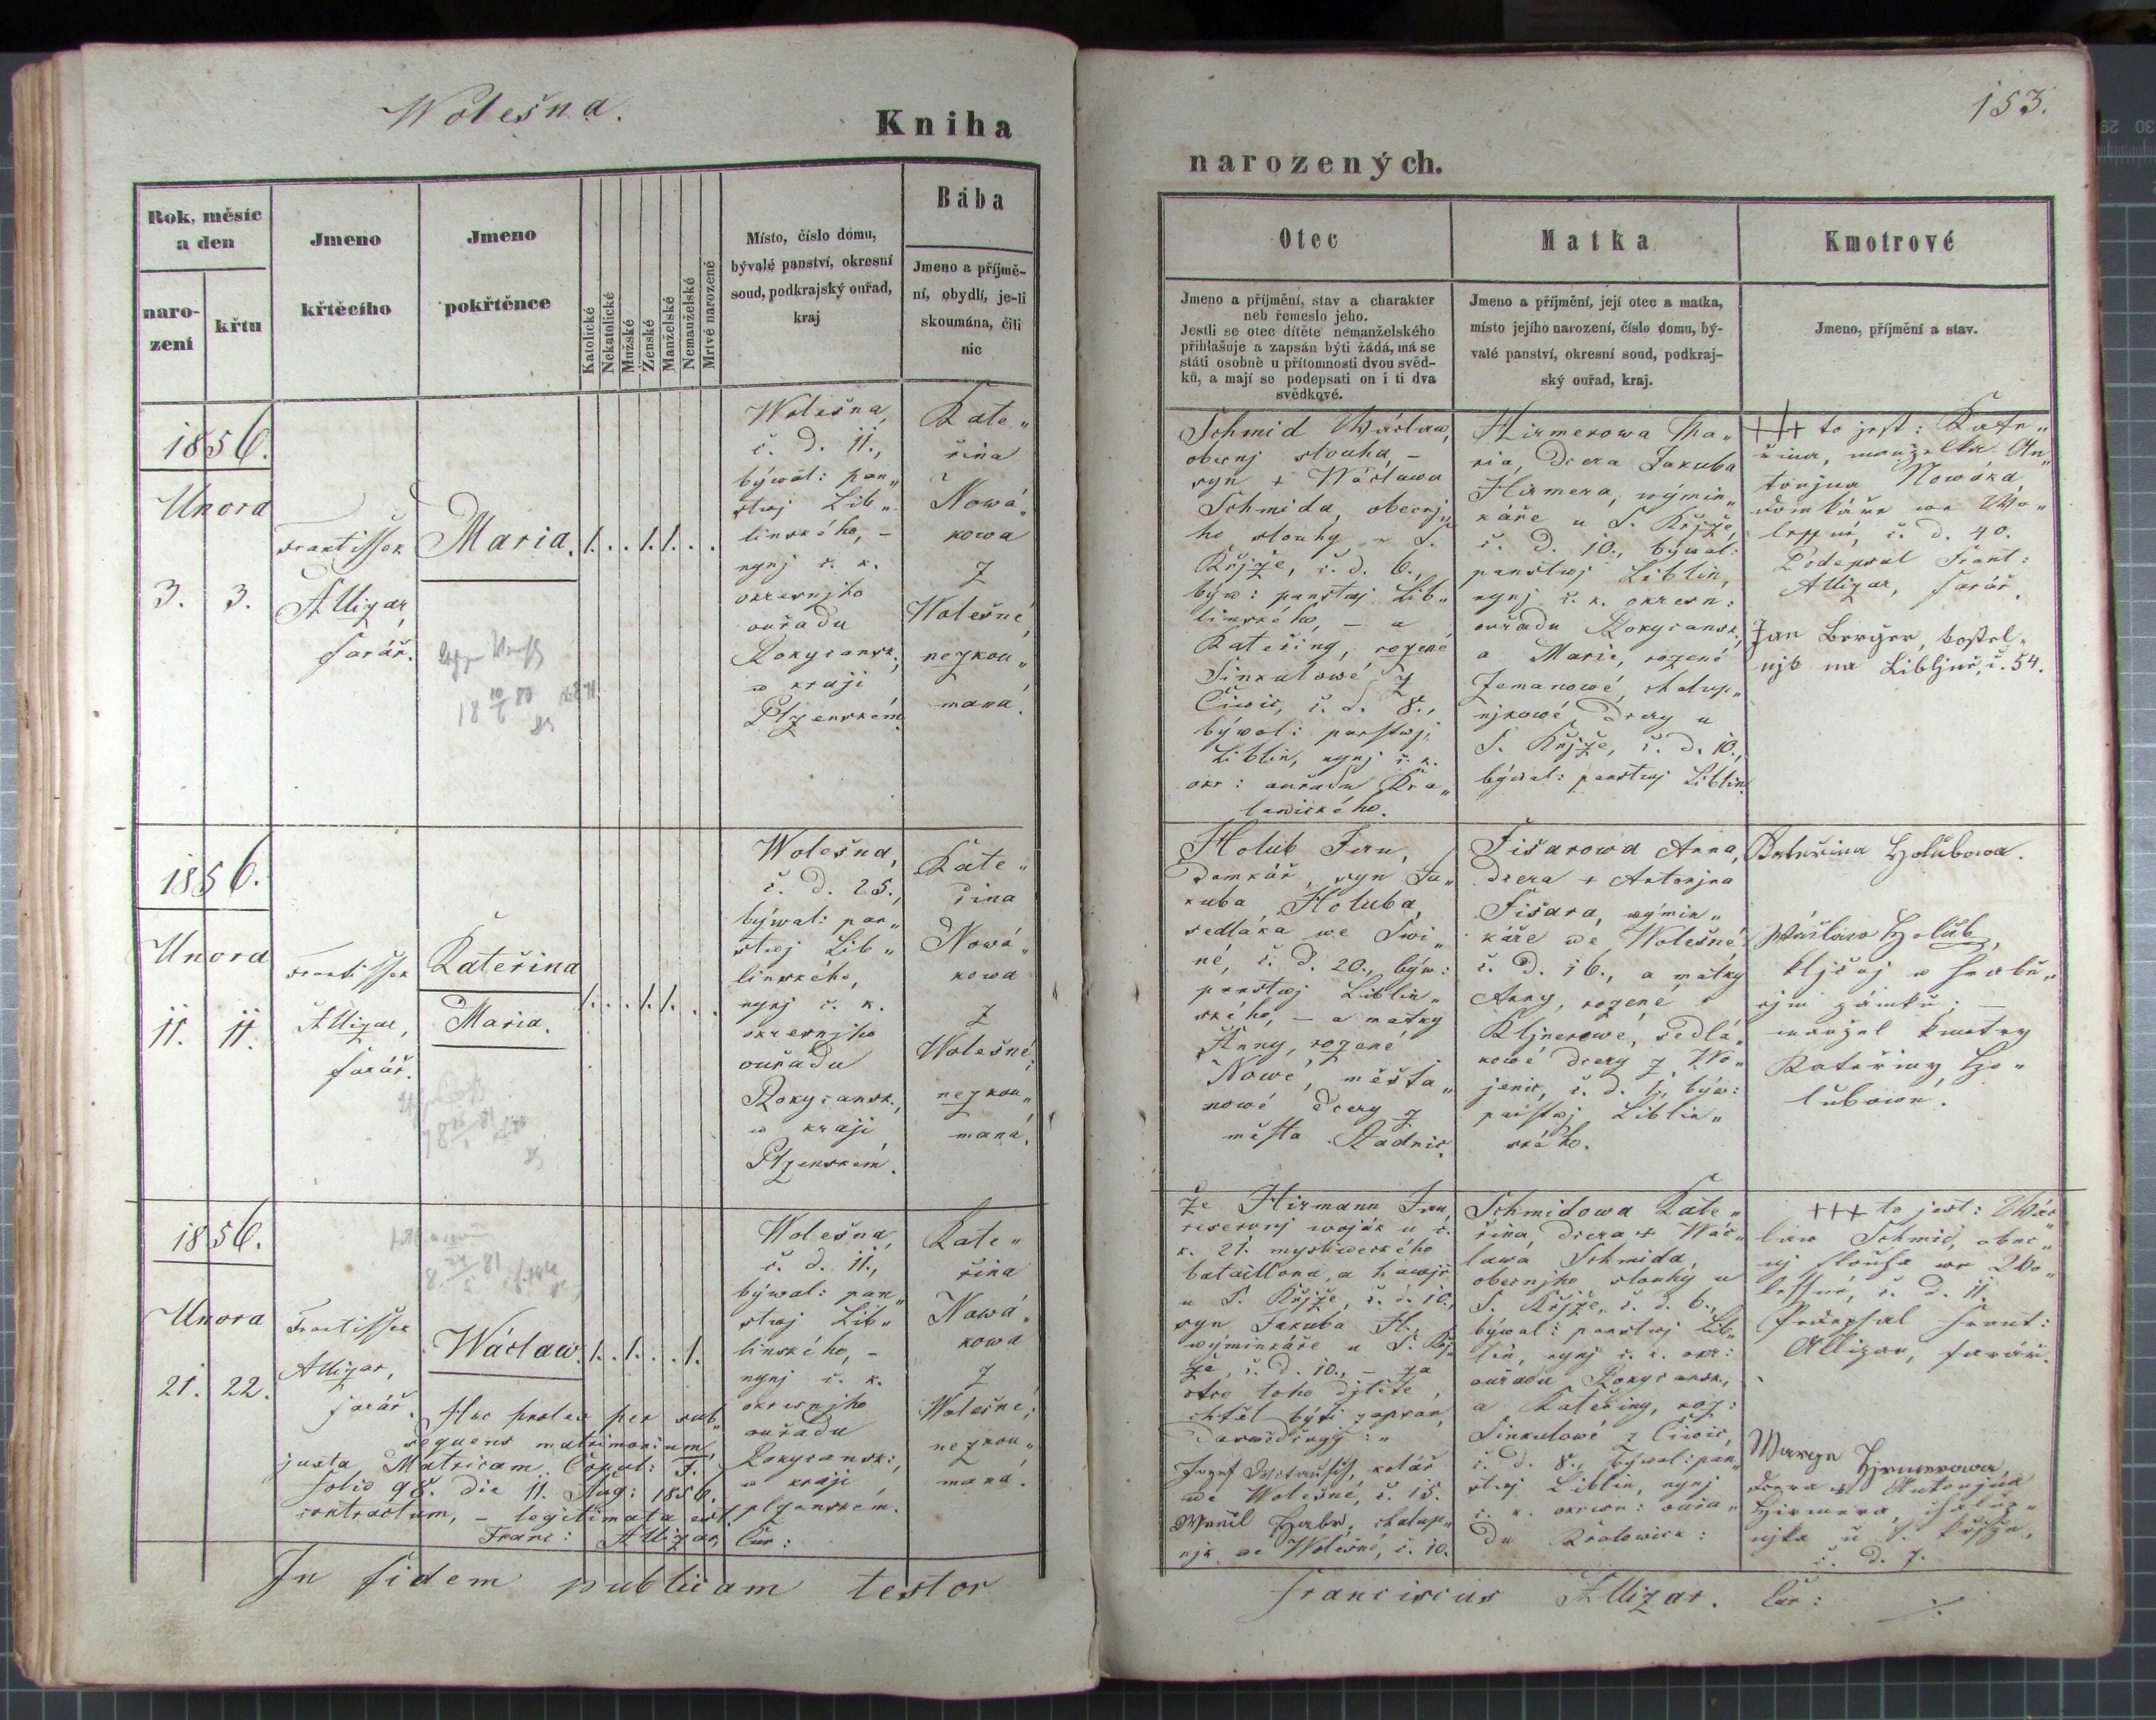 Wolešna.
Kniha
Rok, měsíc
a den
naro-
zení
křtu
Jmeno
křtěcího
Jmeno
pokřtěnce
Katolické
Nekatolické
Mužské
Ženské
Manželské
Nemanželské
Mrtvě narozené
Místo, číslo domu,
bývalé panství, okresní
soud, podkrajský ouřad,
kraj
Bába
Jmeno a příjmě-
ní, obydlí, je-li
skoumána, čili
nic
1856.
Unora
3. 3.
Frantissek
Alligar,
farář.
Maria.
1. . . 1. 1. . .
Wolešna,
č. D. 11.,
býwal: pan„
stwj Lib„
linského, –
nynj c. k.
okresnjho
ouřadu
Rokycansk.,
w kraji
Plzenském.
Kate„
řina
Nowá„
kowa
z
Wolešné,
nezkou„
maná.
1856.
Unora
11. 11.
Frantissek
Alligar,
farář.
Kateřina
Maria.
1. . . 1. 1. . .
Wolešna,
č. D. 25.,
býwal: pan„
stwj Lib„
linského,
nynj c. k.
okresnjho
ouřadu
Rokycansk.,
w kraji
Plzenském.
Kate„
řina
Nowá„
kowa
z
Wolešné;
nezkou„
maná.
1856.
Unora
21. 22.
Frantissek
Alligar,
farář.
Wáclaw.
1. . 1. . . 1.
Haec proles per sub„
sequens matrimonium,
juxta Matricam Copul: T.
folio 98. die 11. Aug: 1856.
contractum, – legitimata est.
Franc: Alligar, Cur:
Wolešna,
č. d. 11.,
býwal: pan„
stwj Lib„
linského, –
nynj c. k.
okresnjho
ouřadu
Rokycansk:,
w kraji
plzenském.
Kate„
řina
Nowá„
kowa
z
Wolešné;
nezkou„
maná.
In fidem publicam testor
153.
narozených.
Otec
Jmeno a příjmění, stav a charakter
neb řemeslo jeho.
Jestli se otec dítěte nemanželského
přihlašuje a zapsán býti žádá, má se
státi osobně u přítomnosti dvou svěd-
ků, a mají se podepsati on i ti dva
svědkové.
Matka
Jmeno a příjmění, její otec a matka,
místo jejího narození, číslo domu, bý-
valé panství, okresní soud, podkraj-
ský ouřad, kraj.
Kmotrové
Jmeno, příjmění a stav.
Schmid Wáclaw,
obecnj slouha, –
syn + Wáclawa
Schmida, obecnj„
ho slouhy u S.
Křjže, č. d. 6.,
býw: panstwj Lib„
linského, – a
Kateřiny, rozené
Sinkulowé z
Čiwic, č. d. 8.,
býwal: panstwj
Liblin, nynj c. k.
okr: ouřadu Kra„
lowického.
Hirmerowa Ma„
ria, Dcera Jakuba
Hirmera, wýmin„
káře u S. Křjže,
č. D. 10., býwal:
panstwj Liblin,
nynj c. k. okresn:
ouřadu Rokycansk.,
a Marie, rozené
Zemanowé, chalup„
njkowé dcery u
S. Křjže, č. D. 10.,
býwal: panstwj Liblin.
+++ to jest: Kate„
řina, manželka An„
tonjna Nowáka,
domkáře we Wo„
lessné, č. d. 40.
Podepsal Frant:
Alligar, farář.
Jan Berger, kostel„
njk na Libljně, č. 54.
Holub Jan,
Domkář, syn Ja„
kuba Holuba,
sedláka we Swi„
né, č. D. 20., býw:
panstwj Liblin„
ského, – a matky
Anny, rozené
Nowé, měšťa„
nowé dcery z
města Radnic.
Fišarowa Anna,
Dcera + Antonjna
Fišara, wýmin„
káře we Wolešné
č. D. 16., a matky
Anny, rozené
Kljnerowé, sedlá„
kowé dcery z Wo„
jenic, č. d. 1., býw:
panstwj Liblin„
ského.
Kateřina Holubowa.
Wáclaw Holub,
kljčaj w hrabě„
cjm zámku; –
manžel kmotry
Kateřiny Ho„
lubowé.
Že Hirmann Jan,
reservnj woják u c.
k. 21. mysliweckého
bataillona, a hawjř
u S. Křjže, č. d. 10.,
syn Jakuba H.,
wýminkáře u S. Křj„
že, č. D. 10., – za
otce toho djtěte
chtěl býti zapsan,
Daswědčugj:„
we Wolešné, č. 15.
njk we Wolešné, č. 10.
Schmidowa Kate„
řina, Dcera + Wác„
lawa Schmida,
obecnjho slouhy u
S. Křjže, č. d. 6.,
býwal: panstwj Lib„
lin, nynj c. k. okr:
ouřadu Rokycansk.,
a Kateřiny, roz:
Sinkulowé z Čiwic,
č. D. 8., býwal: pan„
stwj Liblin, nynj
c. k. okresn: ouřa„
du Kralowick:
+++ to jest: Wác„
law Schmid, obec„
nj slouha we Wo„
lessné, č. D. 11.
Podepsal Frant:
Alligar, farář.
Marye Hirmerowa
dcera + Antonjna
Hirmera, chalup„
njka u S. Křjže,
č. D. 7.
Franciscus Alligar. Cur: